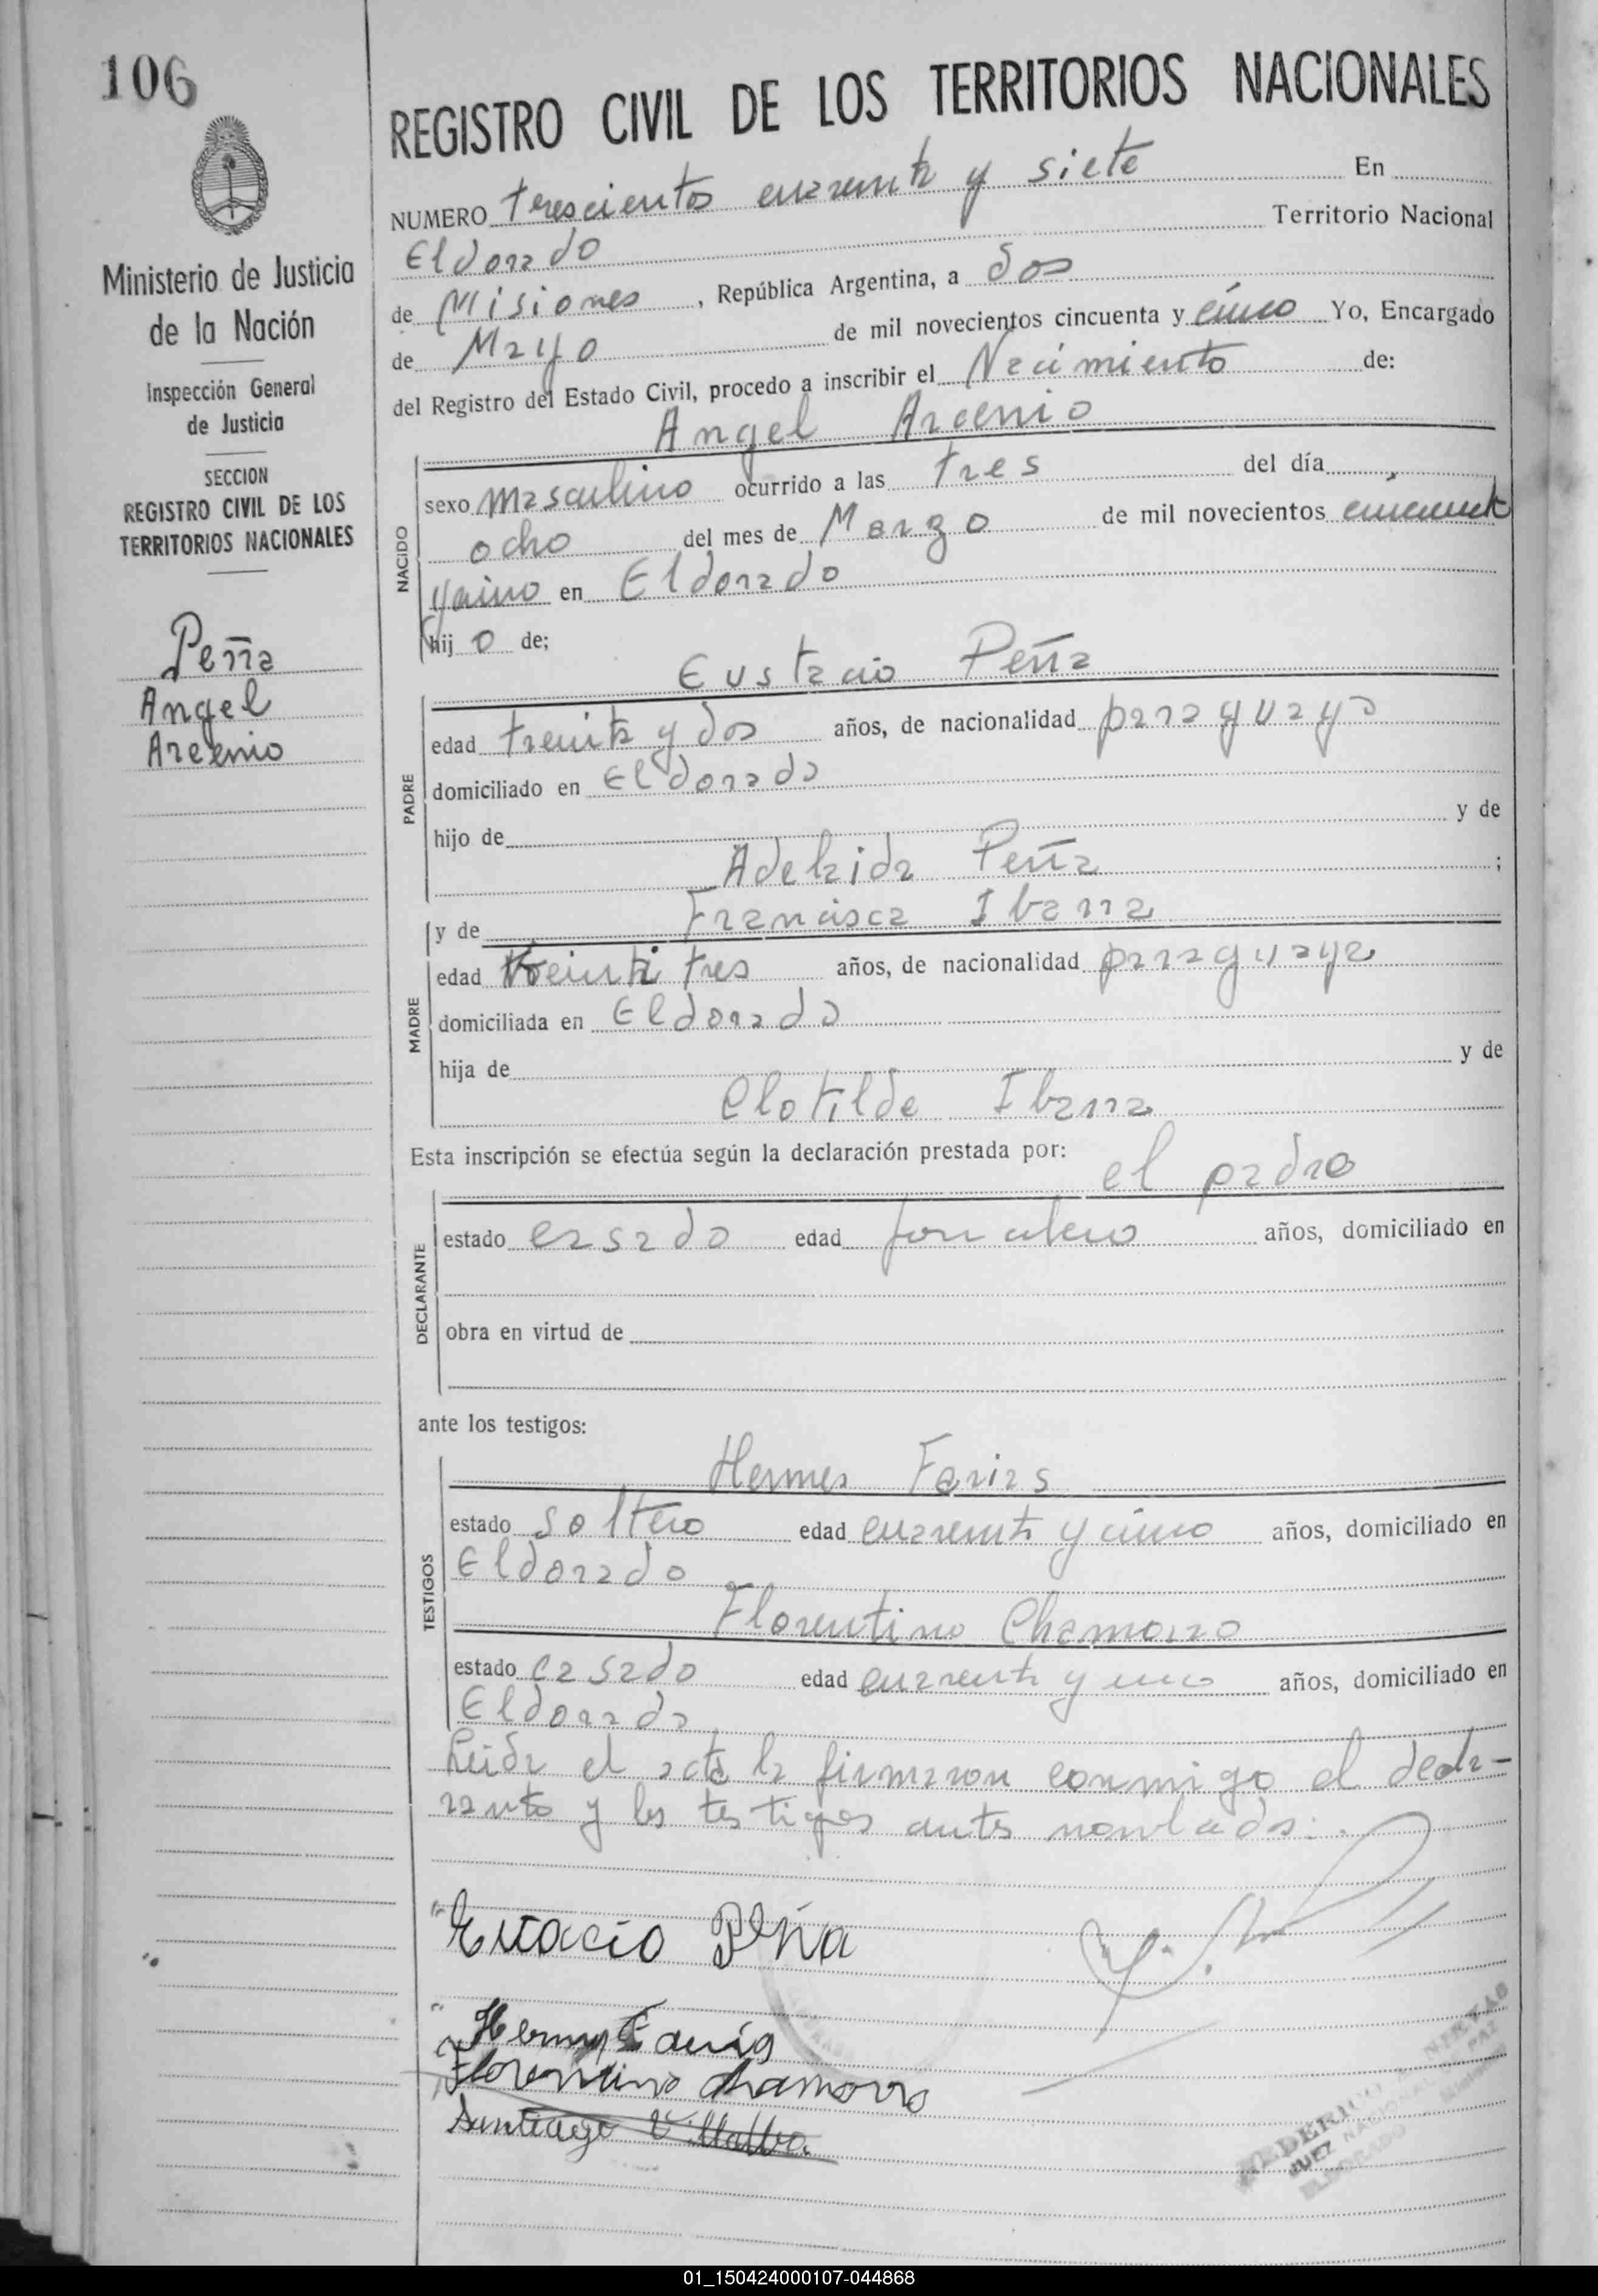 106
Ministerio de Justicia
de la Nación
Inspección General
de Justicia
SECCION
REGISTRO CIVIL DE LOS
TERRITORIOS NACIONALES
Peña
Angel
Arcenio
REGISTRO CIVIL DE LOS TERRITORIOS NACIONALES
NUMERO trescientos cuarenta y siete En
Eldorado Territorio Nacional
de Misiones, República Argentina, a dos
de Mayo de mil novecientos cincuenta y cinco Yo, Encargado
del Registro del Estado Civil, procedo a inscribir el Nacimiento de:
Angel Arcenio
NACIDO
sexo masculino ocurrido a las tres del día
ocho del mes de Marzo de mil novecientos cincuenta
y cinco en Eldorado
hijo de;
Eustacio Peña
PADRE
edad treinta y dos años, de nacionalidad paraguayo
domiciliado en Eldorado
hijo de y de
Adelaida Peña ;
y de Francisca Ibarra
MADRE
edad veinti tres años, de nacionalidad paraguaya
domiciliada en Eldorado
hija de y de
Clotilde Ibarra
Esta inscripción se efectúa según la declaración prestada por:
el padre
DECLARANTE
estado casado edad años, domiciliado en
obra en virtud de
ante los testigos:
Hermes Farias
TESTIGOS
estado soltero edad cuarenta y cinco años, domiciliado en
Eldorado
Florentino Chamorro
estado casado edad cuarenta y uno años, domiciliado en
Eldorado
Leida el acta la firmaron conmigo el decla-
rante y los testigos antes nombrados.
Eutacio Peña
Hermes Faria
Florentino Chamorro
Santiago Villalba
FEDERICO
JUEZ NACIONAL DE PAZ
ELDORADO Misiones
01_150424000107-044868